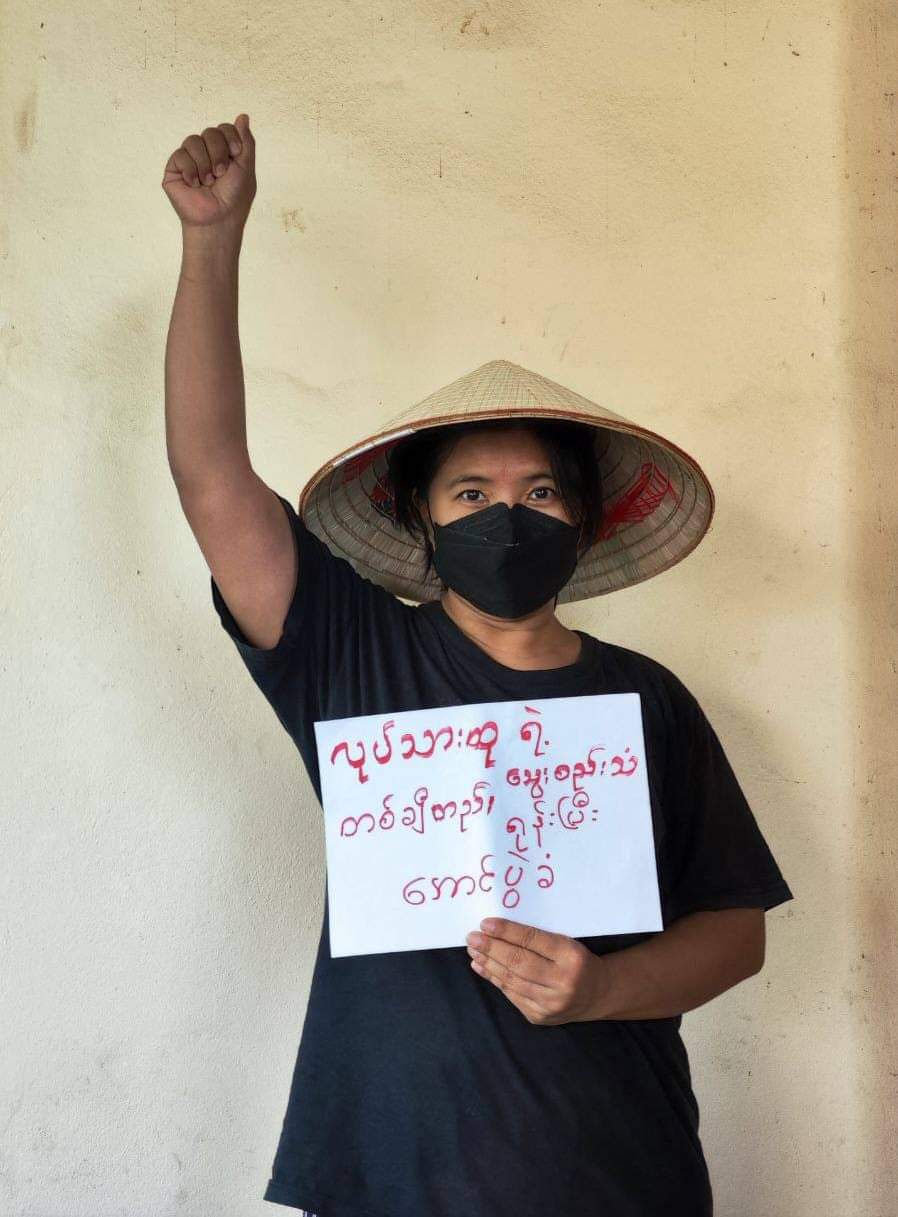 လုပ်သားထု ရဲ့
မွေးစည်းသံ
တစ်ချီတည်း၊ ရုန်းပြီး
အောင်ပွဲခံ